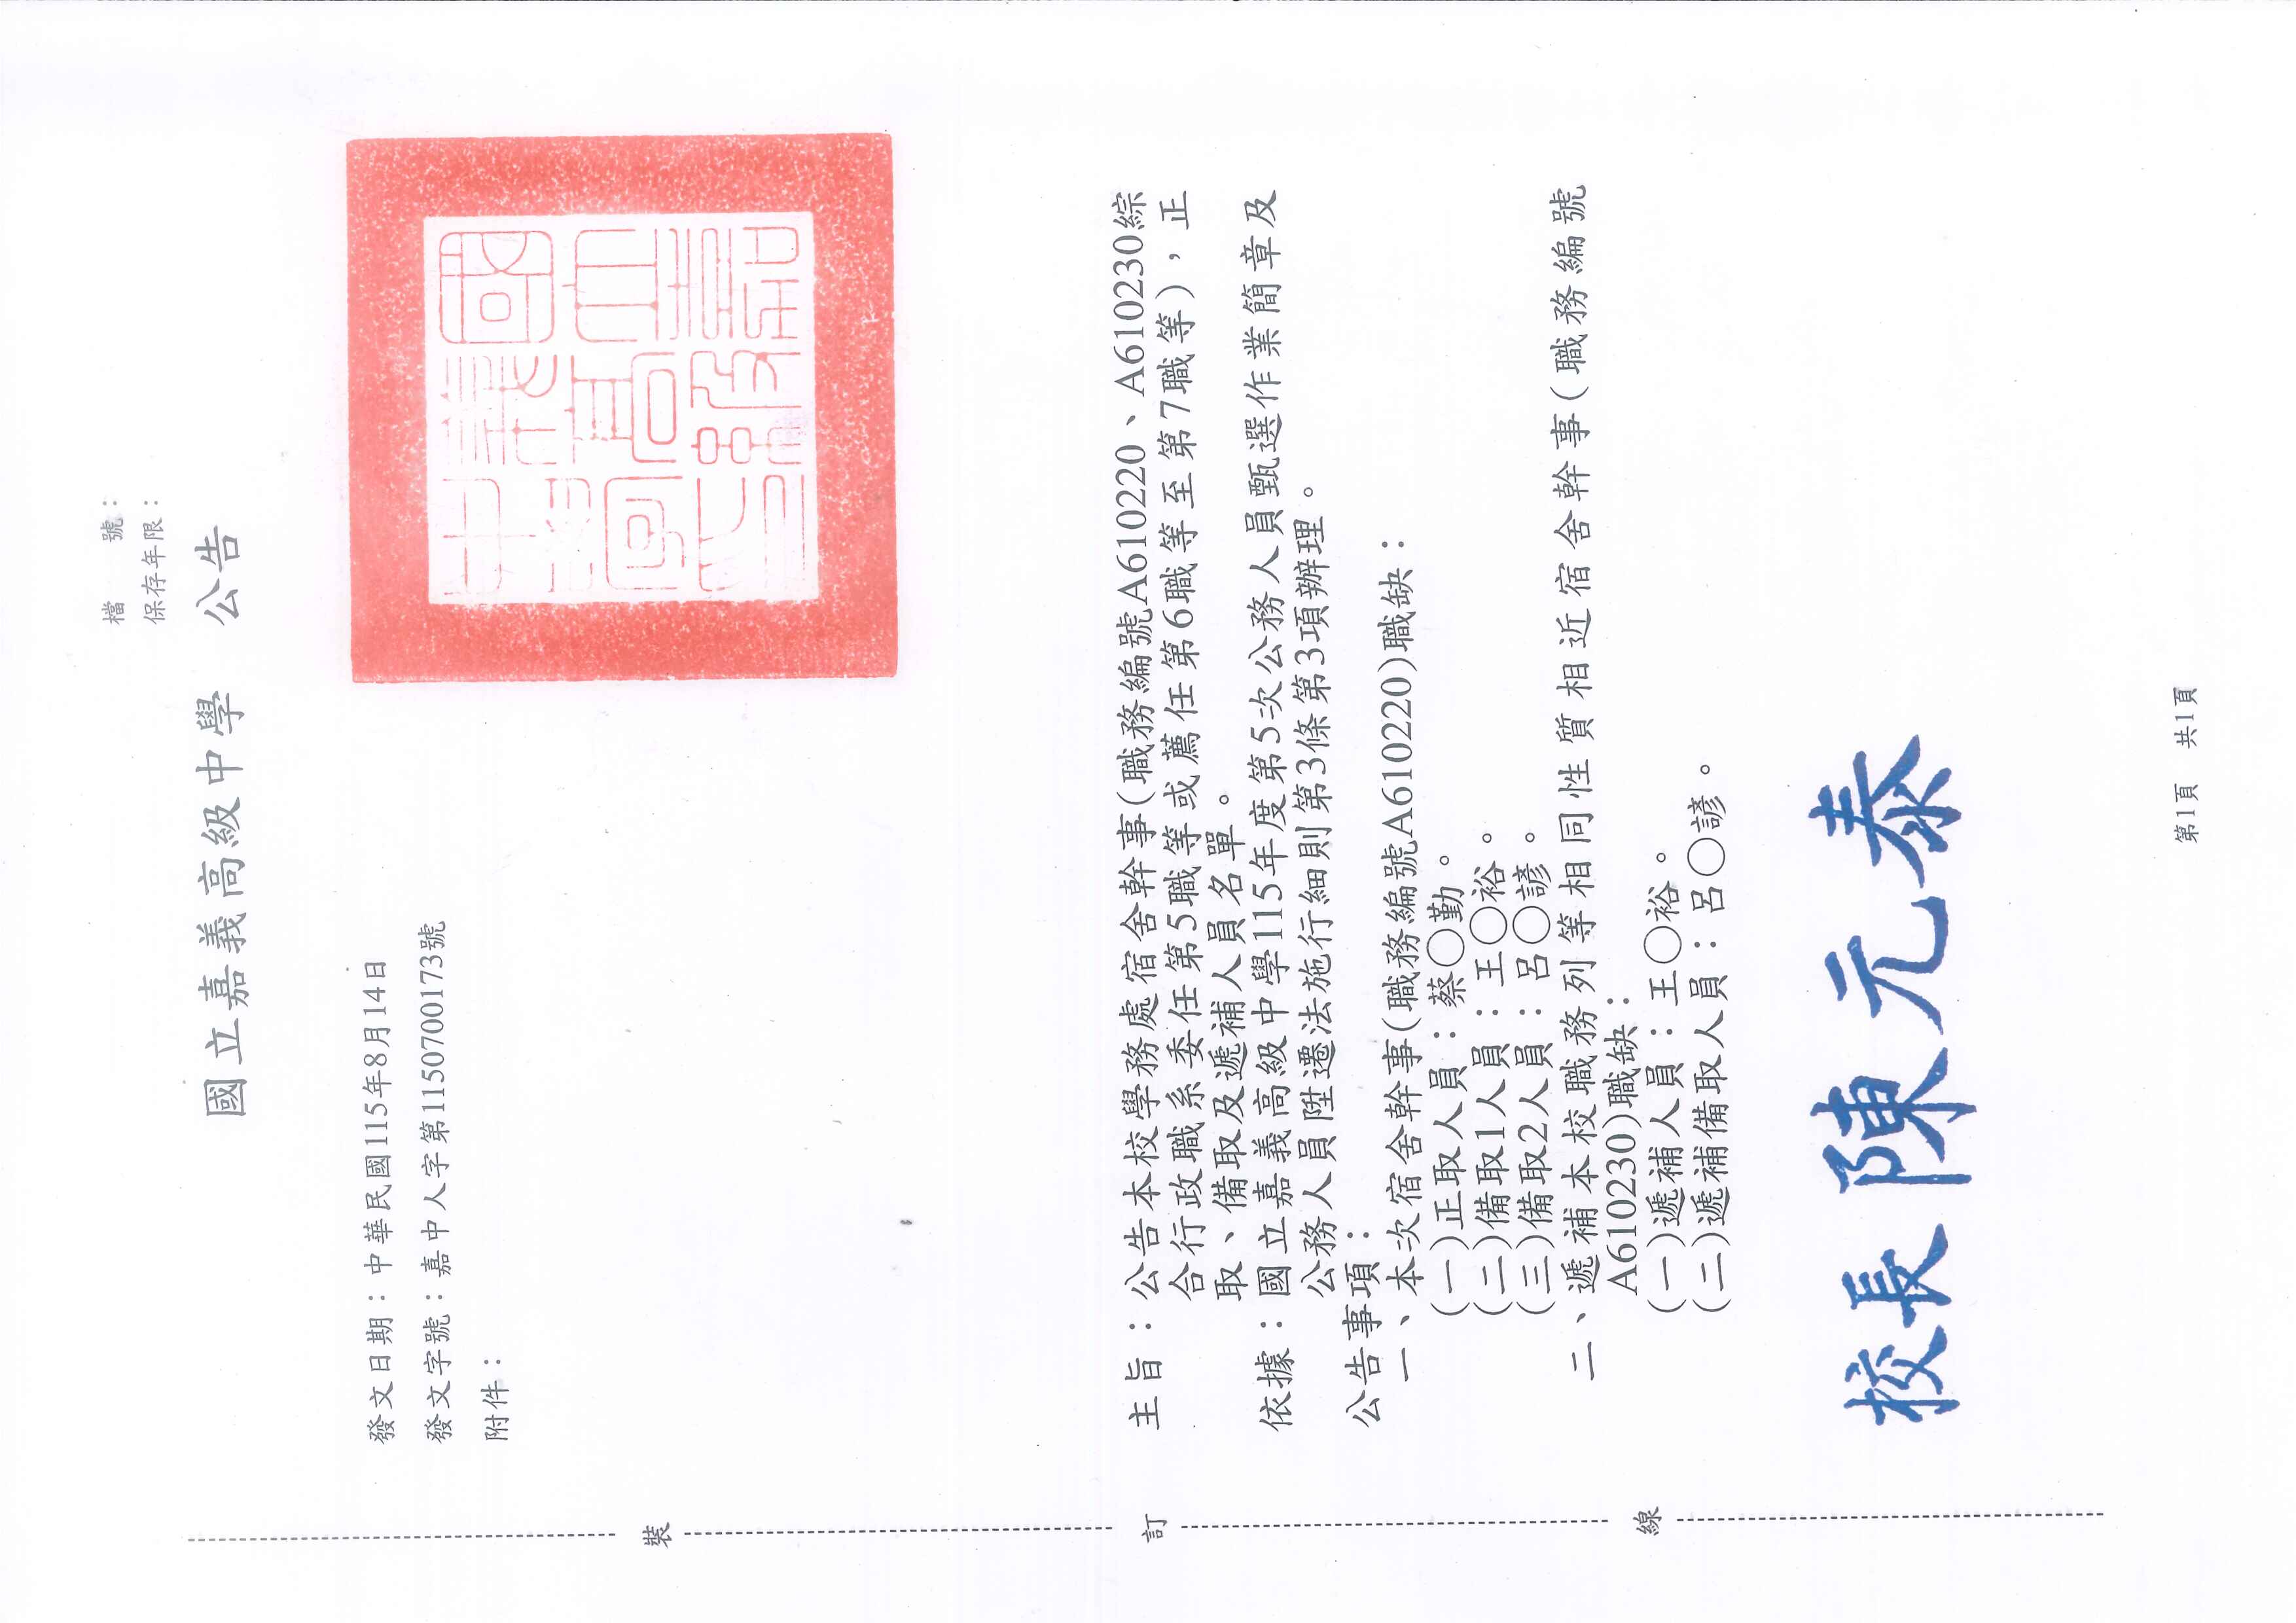 檔　　號：
保存年限：
國立嘉義高級中學　公告
發文日期：中華民國115年8月14日
發文字號：嘉中人字第1150700173號
附件：
主旨：公告本校學務處宿舍幹事(職務編號A610220、A610230綜
合行政職系委任第5職等或薦任第6職等至第7職等)，正
取、備取及遞補人員名單。
依據：國立嘉義高級中學115年度第5次公務人員甄選作業簡章及
公務人員陞遷法施行細則第3條第3項辦理。
公告事項：
一、本次宿舍幹事(職務編號A610220)職缺：
(一)正取人員：蔡○勤。
(二)備取1人員：王○裕。
(三)備取2人員：呂○諺。
二、遞補本校職務列等相同性質相近宿舍幹事(職務編號
A610230)職缺：
(一)遞補人員：王○裕。
(二)遞補備取人員：呂○諺。
校長陳元泰
第1頁　共1頁
裝
訂
線